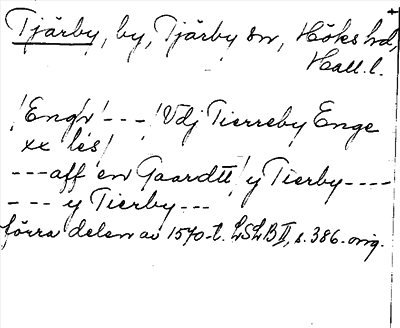 Tjärby, by, Tjärby sn, Höks hd,
Hall. l.
/Engh/ --- /Vdj Tierreby Enge
xx les/
--- aff en Gaardtt / y Tierby ----
--- y Tierby ---
förra delen av 1570-t. LSLB II, s. 386. orig.